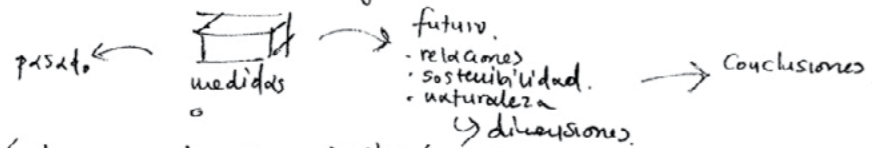 pasado
medidas
futuro.
· relaciones
· sostenibilidad.
· naturaleza
↳ dimensiones
Conclusiones